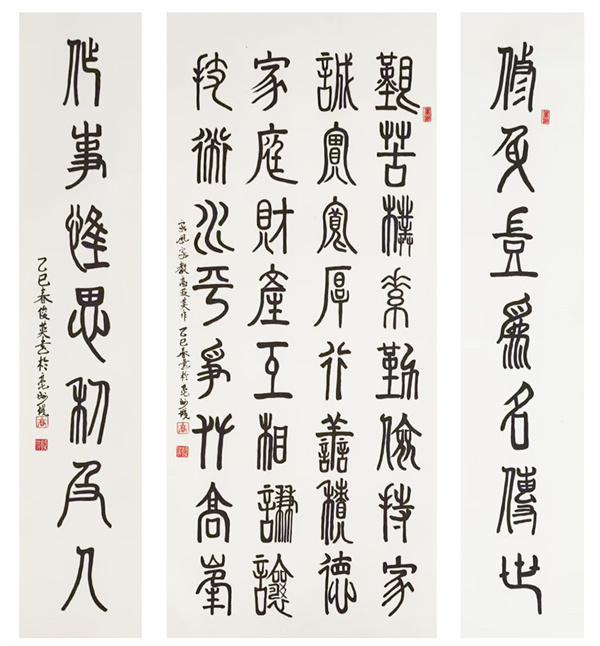 修身豈為名傳世
艱苦樸素勤儉持家
誠實寬厚行善積德
家庭財產互相謙讓
技術水平爭攀高峯
家風家教 乙巳春書於亳州
作事惟思利及人
乙巳春俊英書於亳州